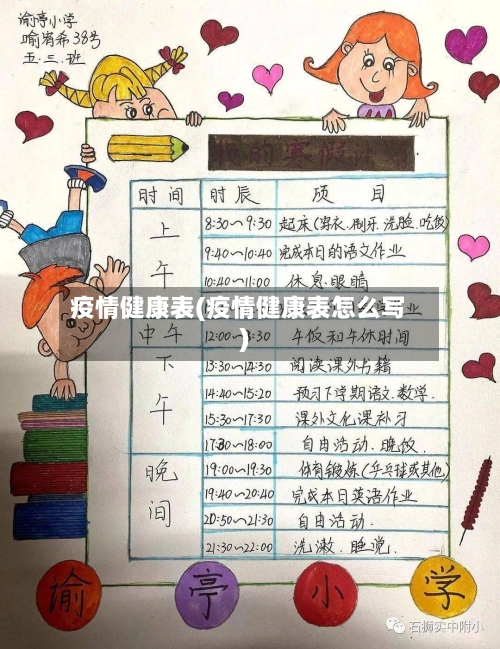 谕亭小学
喻宥希38号
五.三.班
我的寒假计
时间 时辰 项 目
上午
8:30～9:30 起床(穿衣.刷牙.洗脸.吃饭)
9:40～10:40 完成本日的语文作业
10:40～11:00 休息.眼睛
业
疫情健康表(疫情健康表怎么写
)
中午 12:00～13:30 午饭和午休时间
下午
13:30～14:30 阅读课外书籍
14:40～15:20 预习下学期语文.数学.
15:30～17:30 课外文化课补习
17:30～18:00 自由活动.晚饭.
晚间
19:00～19:30 体育锻炼(乒乓球或其他)
19:40～20:40 完成本日英语作业
20:50～21:30 自由活动.
21:30～22:00 洗漱.睡觉.
谕亭小学
石狮实中附小